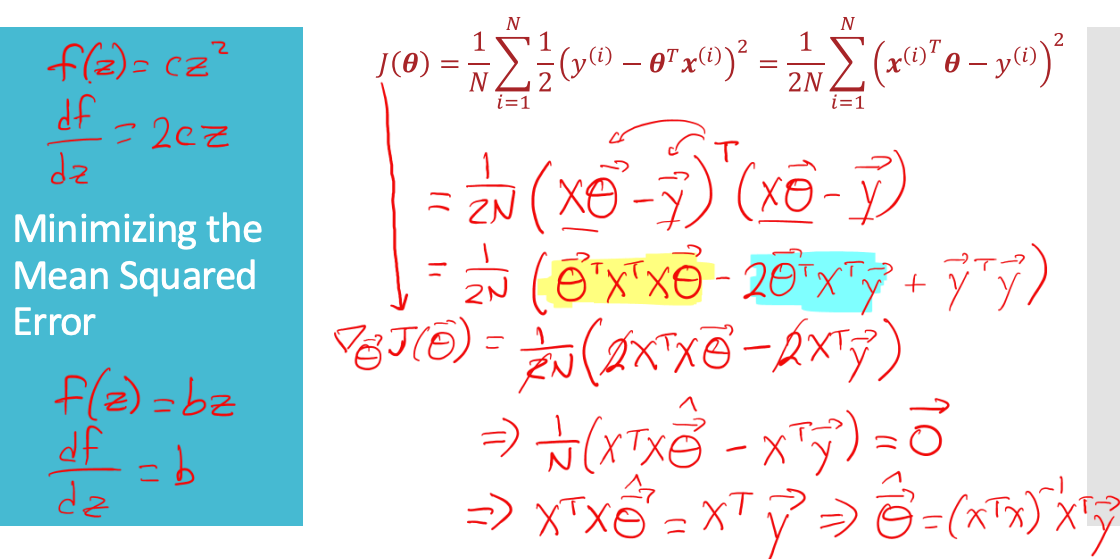 f(z) = cz²
df/dz = 2cz
Minimizing the
Mean Squared
Error
f(z) = bz
df/dz = b
J(θ) = 1/N ∑_{i=1}^{N} 1/2 (y⁽ⁱ⁾ − θᵀx⁽ⁱ⁾)² = 1/2N ∑_{i=1}^{N} (x⁽ⁱ⁾ᵀθ − y⁽ⁱ⁾)²
= 1/2N (Xθ⃗ − y⃗)ᵀ (Xθ⃗ − y⃗)
= 1/2N (θ⃗ᵀXᵀXθ⃗ − 2θ⃗ᵀXᵀy⃗ + y⃗ᵀy⃗)
∇_θ⃗ J(θ⃗) = 1/2N (2XᵀXθ⃗ − 2Xᵀy⃗)
⇒ 1/N (XᵀXθ⃗̂ − Xᵀy⃗) = 0⃗
⇒ XᵀXθ⃗̂ = Xᵀy⃗ ⇒ θ⃗̂ = (XᵀX)⁻¹Xᵀy⃗